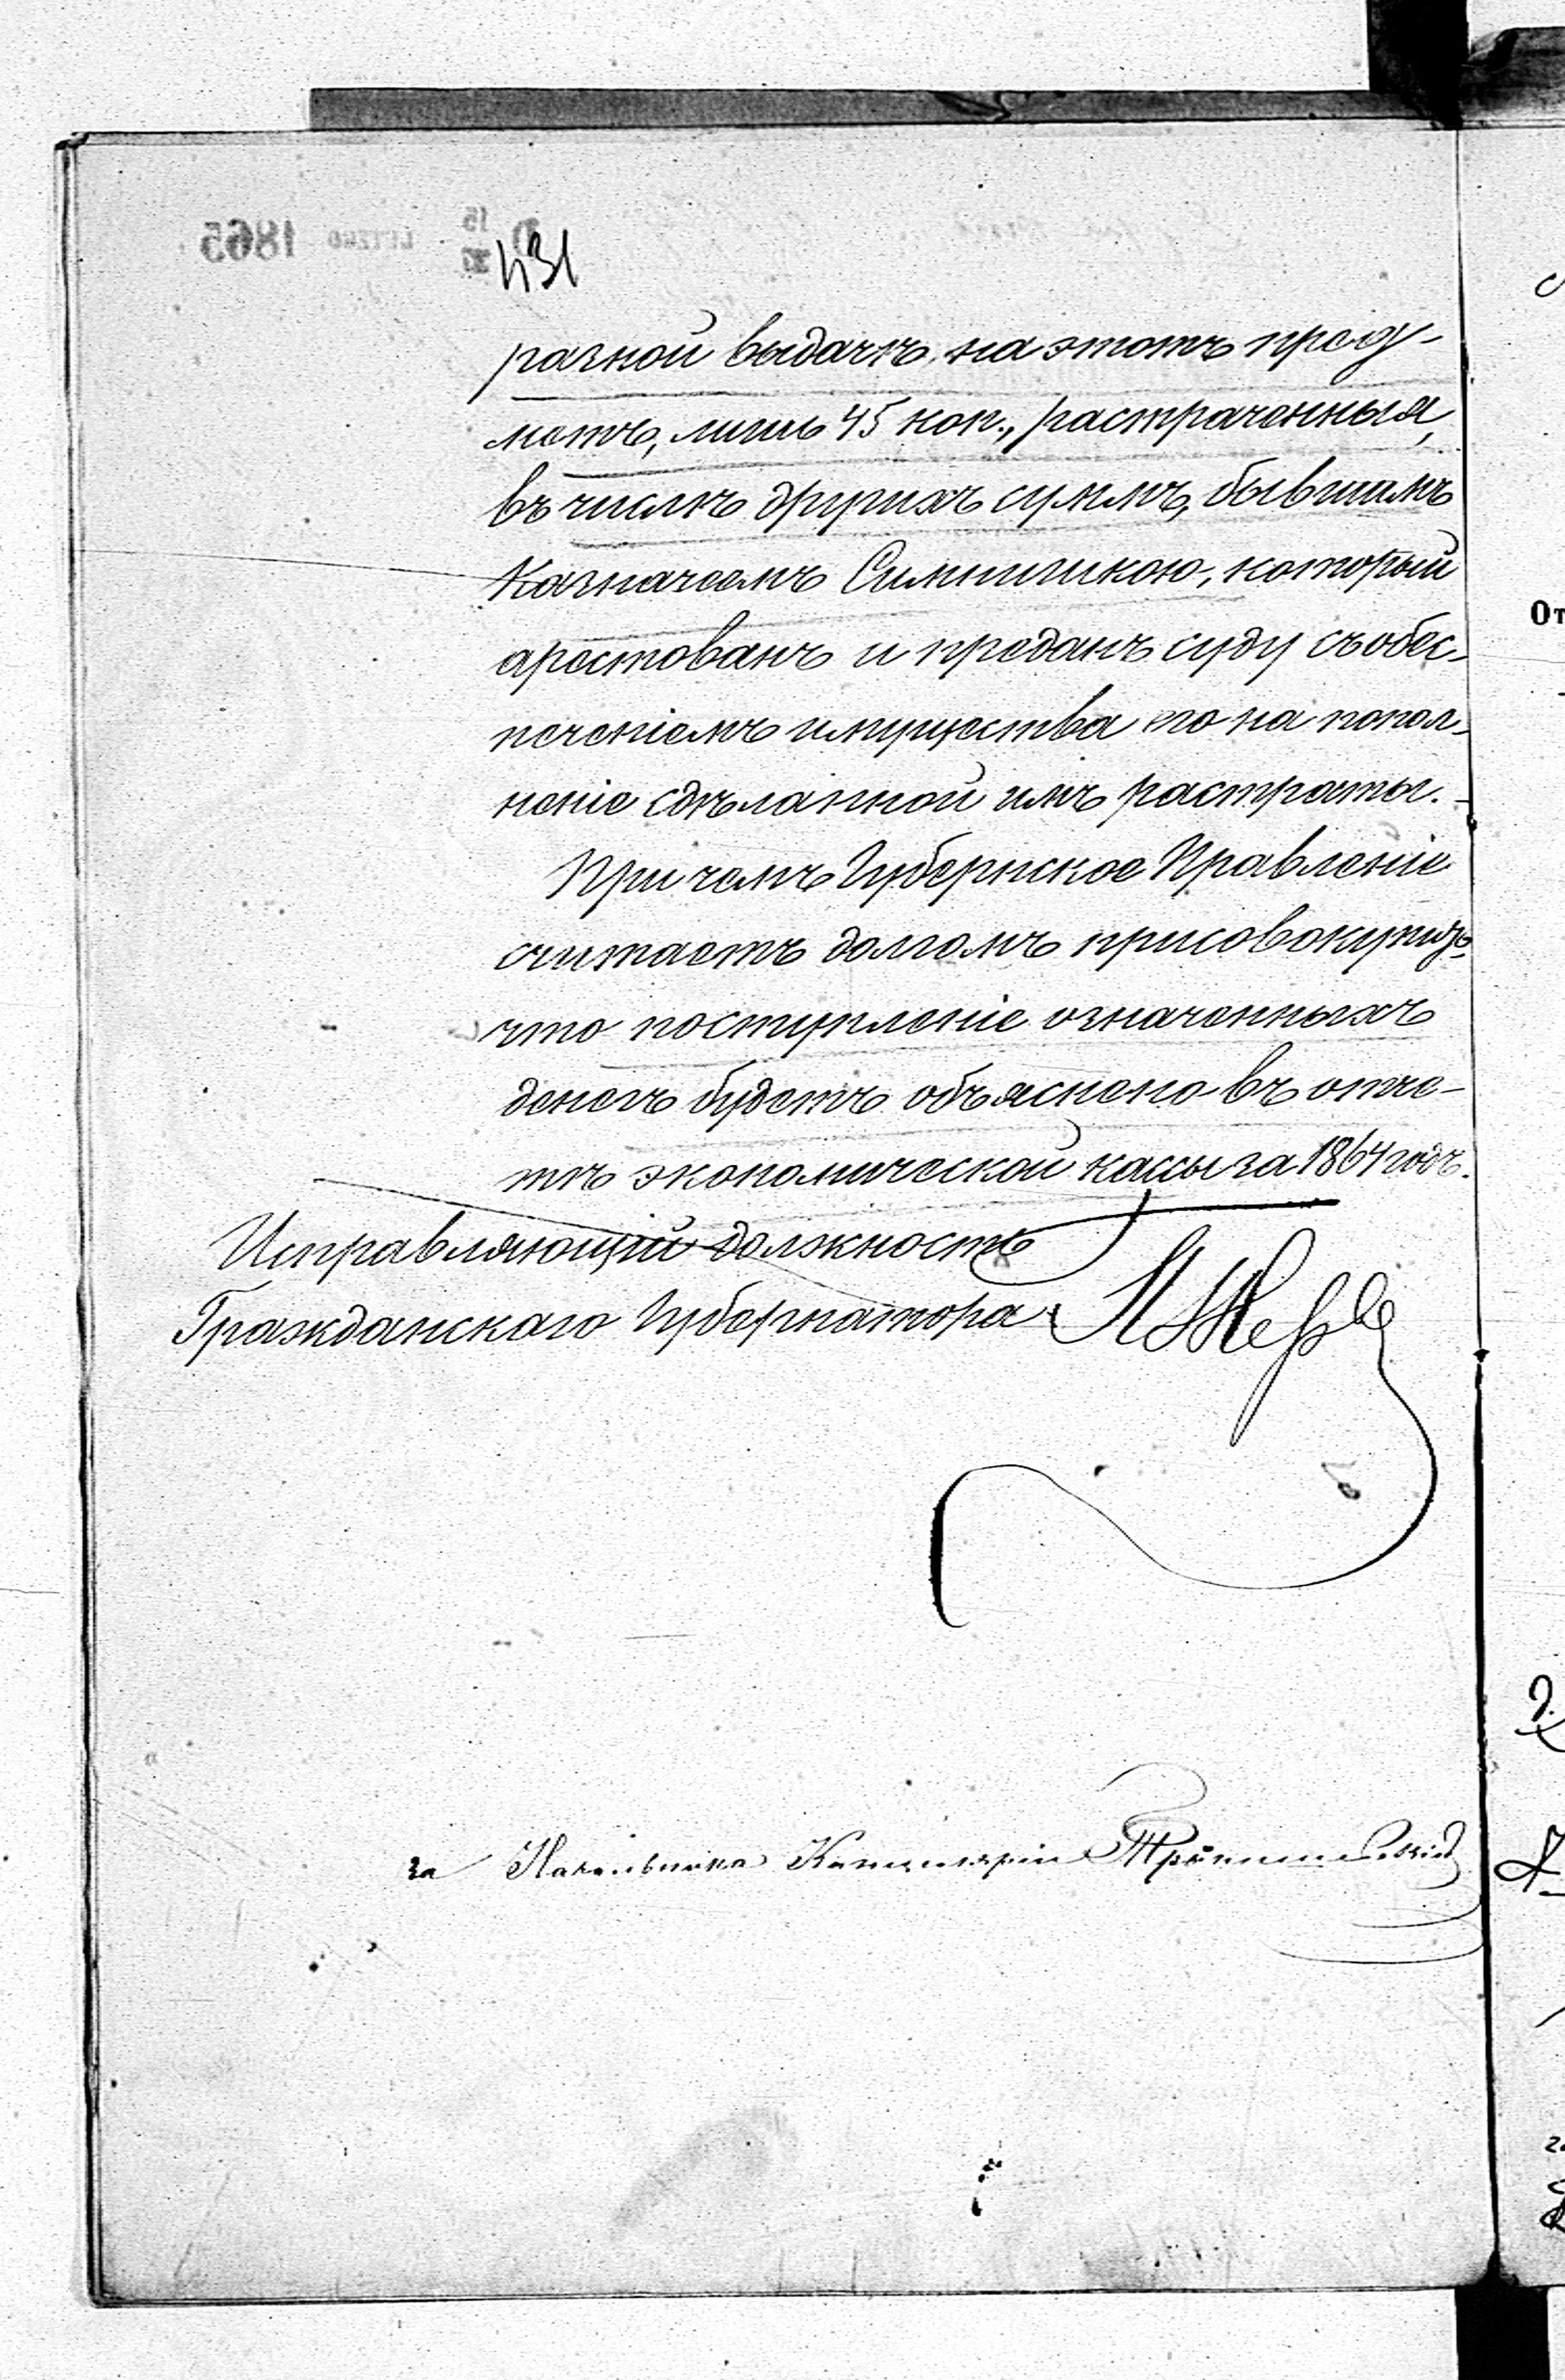 431
разной выдачѣ, на этотъ пред-
метъ, лишь 45 коп., растраченныя,
въ числѣ другихъ суммъ, бывшимъ
Казначеемъ который
арестованъ и преданъ суду съ обес-
печеніемъ имущества его на попол-
неніе сдѣланной имъ растраты.
При чемъ Губернское Правленіе
считаетъ долгомъ присовокупить,
что поступленіе означенныхъ
денегъ будетъ объяснено въ отче-
тѣ экономической кассы за 1864 годъ.
Исправляющій должность
Гражданскаго Губернатора
за Начальника Канцеляріи
1865
От